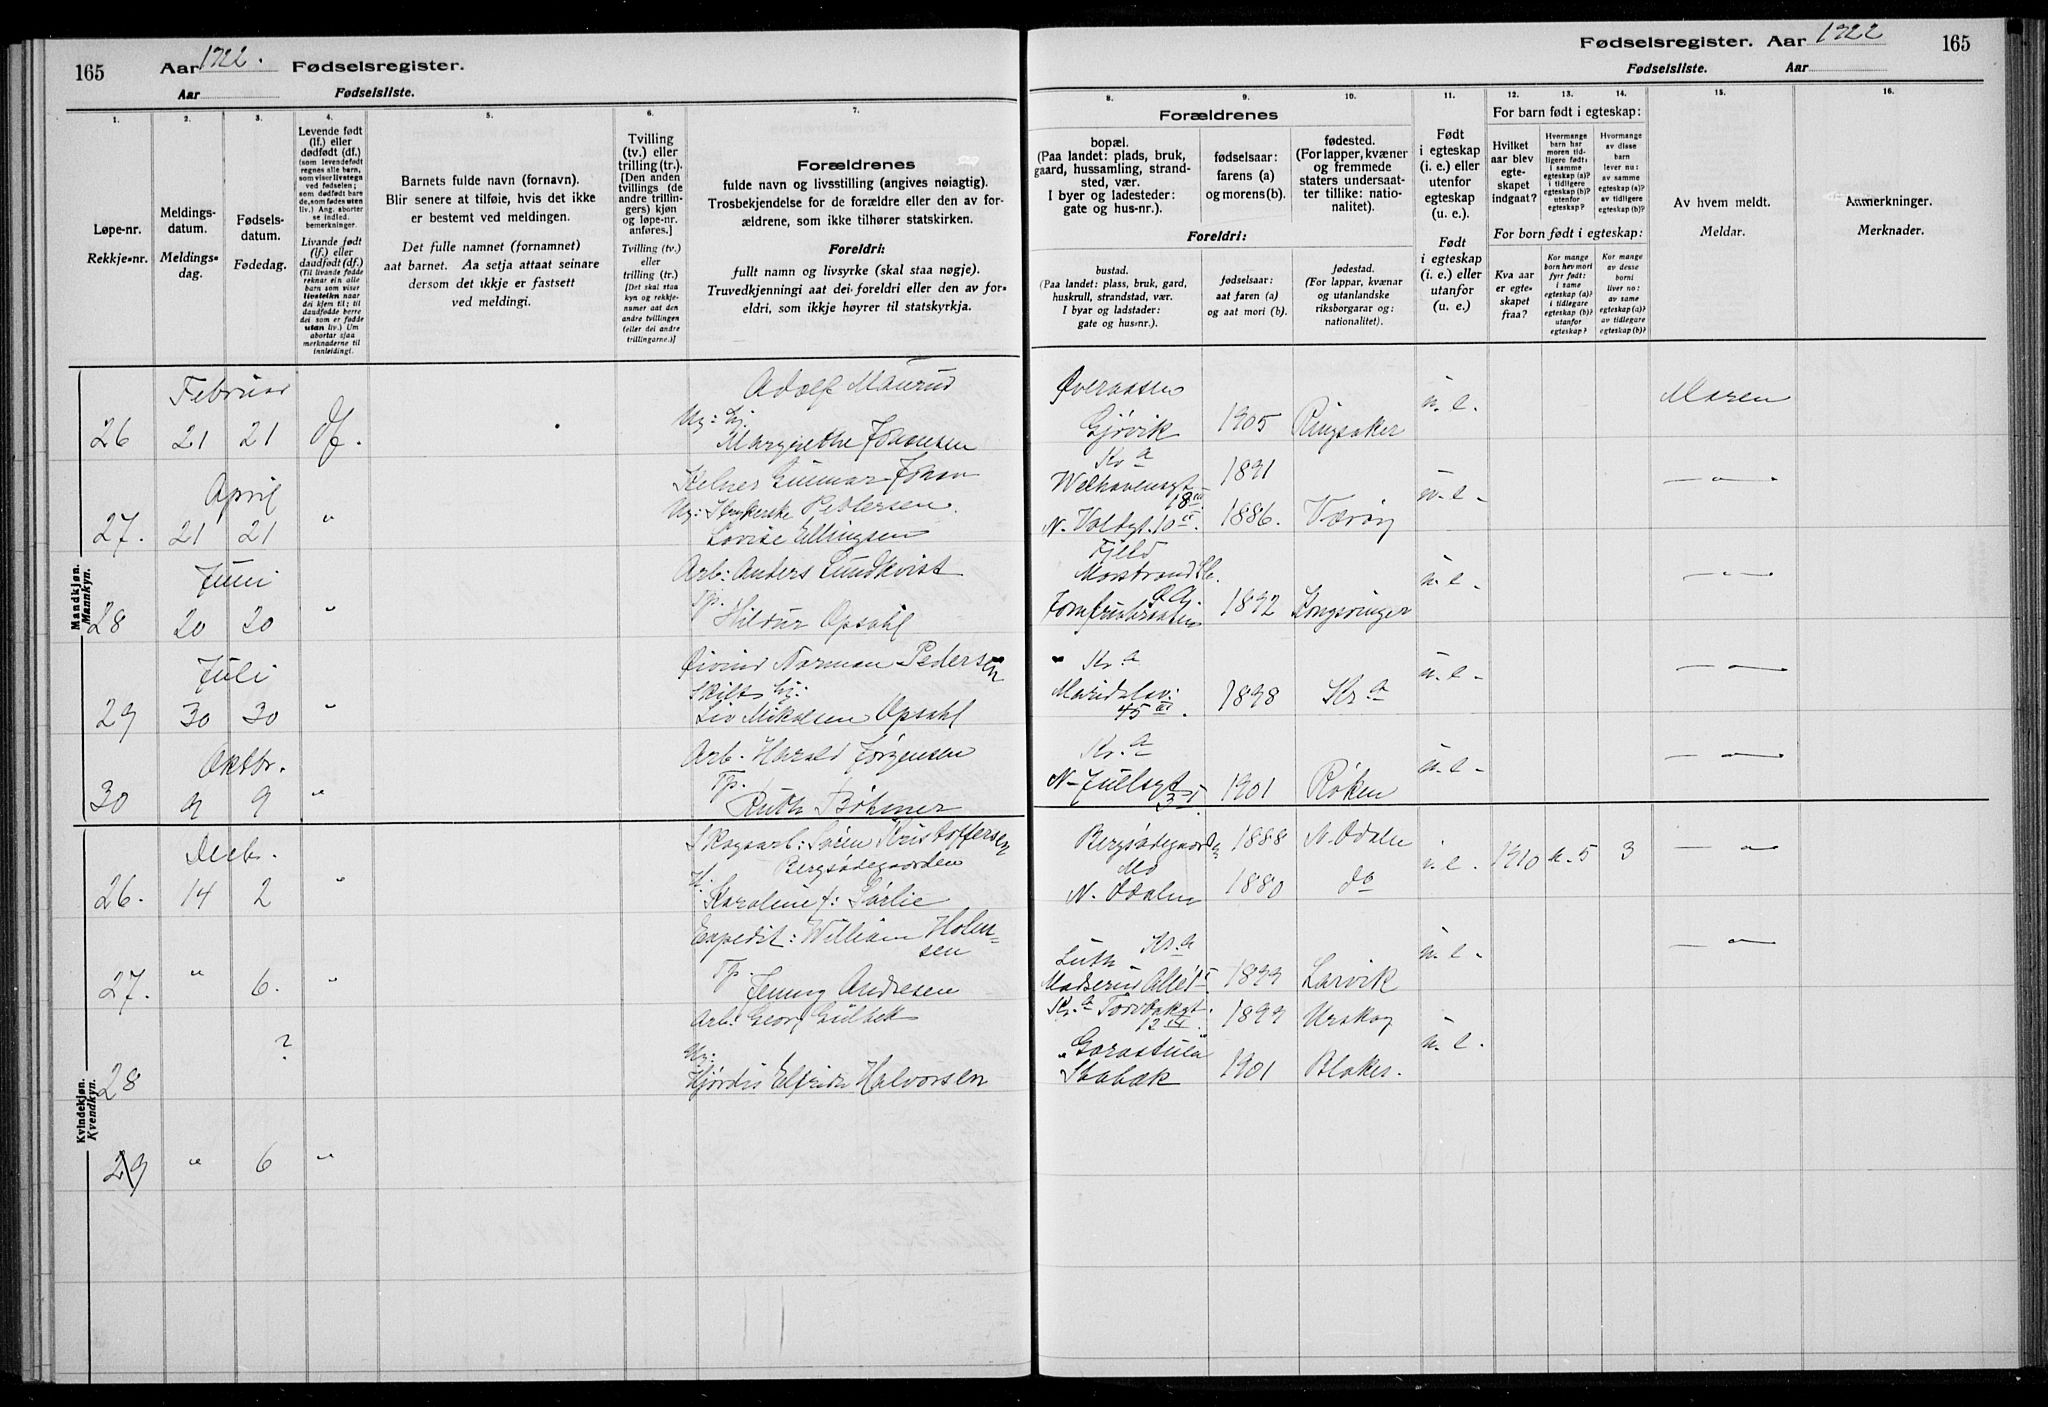 165 Aar 1922. Fødselsregister.
Aar Fødselsliste.
1. 2. 3. 4. 5. 6. 7.
Løpe-nr.
Rekkje-nr.
Meldings-
datum.
Meldings-
dag.
Fødsels-
datum.
Fødedag.
Levende født
(lf.) eller
dødfødt (df.)
(som levendefødt
regnes alle barn,
som viser livstegn
ved fødselen;
som dødfødt bare
de, som fødes uten
liv.) Ang. aborter
se indled.
bemerkninger.
Livande født
(lf.) eller
daudfødt (df.)
(Til livande fødde
reknar ein alle
barn som viser
livsteikn naar
dei kjem til; til
daudfødde berre
dei som er fødde
utan liv.) Um
abortar sjaa
merknaderne til
innleidingi.
Barnets fulde navn (fornavn).
Blir senere at tilføie, hvis det ikke
er bestemt ved meldingen.
Det fulle namnet (fornamnet)
aat barnet. Aa setja attaat seinare
dersom det ikkje er fastsett
ved meldingi.
Tvilling
(tv.) eller
trilling (tr.).
[Den anden
tvillings (de
andre trillin-
gers) kjøn
og løpe-nr.
anføres.]
Tvilling (tv.)
eller
trilling (tr.)
[Det skal staa
kyn og rekkje-
numer aat den
andre tvillingen
(eller dei andre
trillingarne.)]
Forældrenes
fulde navn og livsstilling (angives nøiagtig).
Trosbekjendelse for de forældre eller den av for-
ældrene, som ikke tilhører statskirken.
Foreldri:
fullt namn og livsyrke (skal staa nøgje).
Truvedkjenningi aat dei foreldri eller den av for-
eldri, som ikkje høyrer til statskyrkja.
Mandkjøn.
Mannkyn.
Februar
26 21 21 df.
Adolf Maurud
Ug: hj.
Margrethe Johansen
April
27. 21 21 "
Kelner Gunnar Johan
Ug: Strykerske Pettersen.
Lovise Ellingsen
Juni
28 20 20 "
Arb: Anders Lundkvist
Tp.
Hildur Opsahl
Juli
29 30 30 "
Øivind Norman Pedersen
Liv Mikalsen Opsahl
Oktbr.
30 9 9 "
Arb. Harald Jørgensen
Tp.
Ruth Böhmer
Kvindekjøn.
Kvendkyn.
Decbr.
26. 14 2 "
Skogsarb: Søren Kristoffersen
Bergsødegaarden
H.
Karoline f: Sørlie
27. " 6. "
Expedit: William Holm-
sen
Tp.
Jenny Andresen
28 ?
Arb: Georg Gulbek
Ug:
Hjørdis Elfride Halvorsen
29 " 6 "
Fødselsregister. Aar 1922 165
Fødselsliste. Aar
8. 9. 10. 11. 12. 13. 14. 15. 16.
Forældrenes
bopæl.
(Paa landet: plads, bruk,
gaard, hussamling, strand-
sted, vær.
I byer og ladesteder:
gate og hus-nr.).
fødselsaar:
farens (a)
og morens (b).
fødested.
(For lapper, kvæner
og fremmede
staters undersaat-
ter tillike: natio-
nalitet).
Foreldri:
bustad.
(Paa landet: plass, bruk, gard,
huskrull, strandstad, vær.
I byar og ladstader:
gate og hus-nr.).
fødselsaar:
aat faren (a)
og aat mori (b).
fødestad.
(For lappar, kvænar
og utanlandske
riksborgarar og:
nationalitet).
Født
i egteskap
(i. e.) eller
utenfor
egteskap
(u. e.).
Født
i egteskap
(i. e.) eller
utanfor
(u. e.)
For barn født i egteskap:
Hvilket
aar blev
egte-
skapet
indgaat?
Hvormange
barn har
moren tid-
ligere født:
i samme
egteskap (a)?
i tidligere
egteskap (b)?
utenfor
egteskap?
Hvormange
av disse
barn
lever nu:
av samme
egteskap (a)?
av tidligere
egteskap (b)?
For born født i egteskap:
Kva aar
er egte-
skapet
fraa?
Kor mange
born hev mori
fyrr født:
i same
egteskap (a)?
i tidlegare
egteskap (b)?
utanfor
egteskap?
Kor mange
av desse
borni
liver no:
av same
egteskap (a)?
av tidlegare
egteskap (b)?
Av hvem meldt.
Meldar.
Anmerkninger.
Merknader.
Øveraasen
Gjøvik 1905 Ringsaker u. e. Moren
Kr.a
Welhavensgt 18 III 1891
N. Voldgt. 10 1886. Værøy u. e. — " —
1892 Kongsvinger u. e. — " —
Kr.a
Maridalsv: 45 III. 1898 Kr.a u. e. — " —
Kr.a
N. Juelsgt 35 1901 Røken u. e. — " —
Bergsødegaarden 1888 N. Odalen
Mo
N. Odalen 1880 do u. e. 1910 a. 5 3 — " —
Kr.a
1899 Larvik u. e. — " —
Kr.a Tordbakgt.
12 IV. 1899 Urskog
Stabæk 1901 Blaker. u. e.